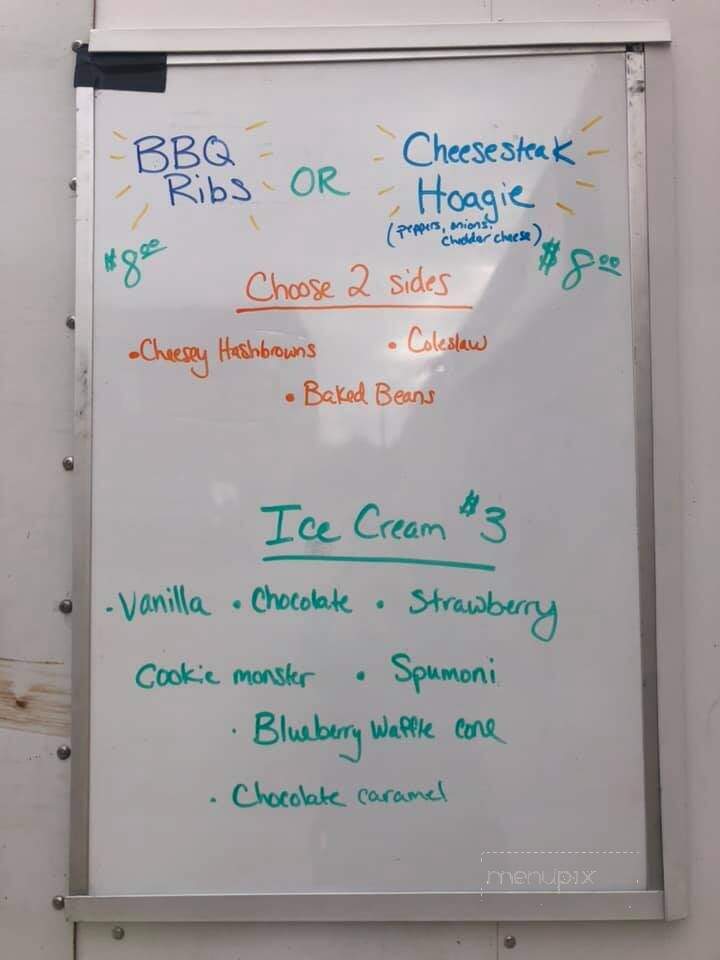 BBQ Ribs OR Cheesesteak Hoagie
(peppers, onions, cheddar cheese)
$8.00 $8.00
Choose 2 sides
• Cheesey Hashbrowns • Coleslaw
• Baked Beans
Ice Cream $3
• Vanilla • Chocolate • Strawberry
Cookie monster • Spumoni
• Blueberry Waffle cone
• Chocolate caramel
menupix